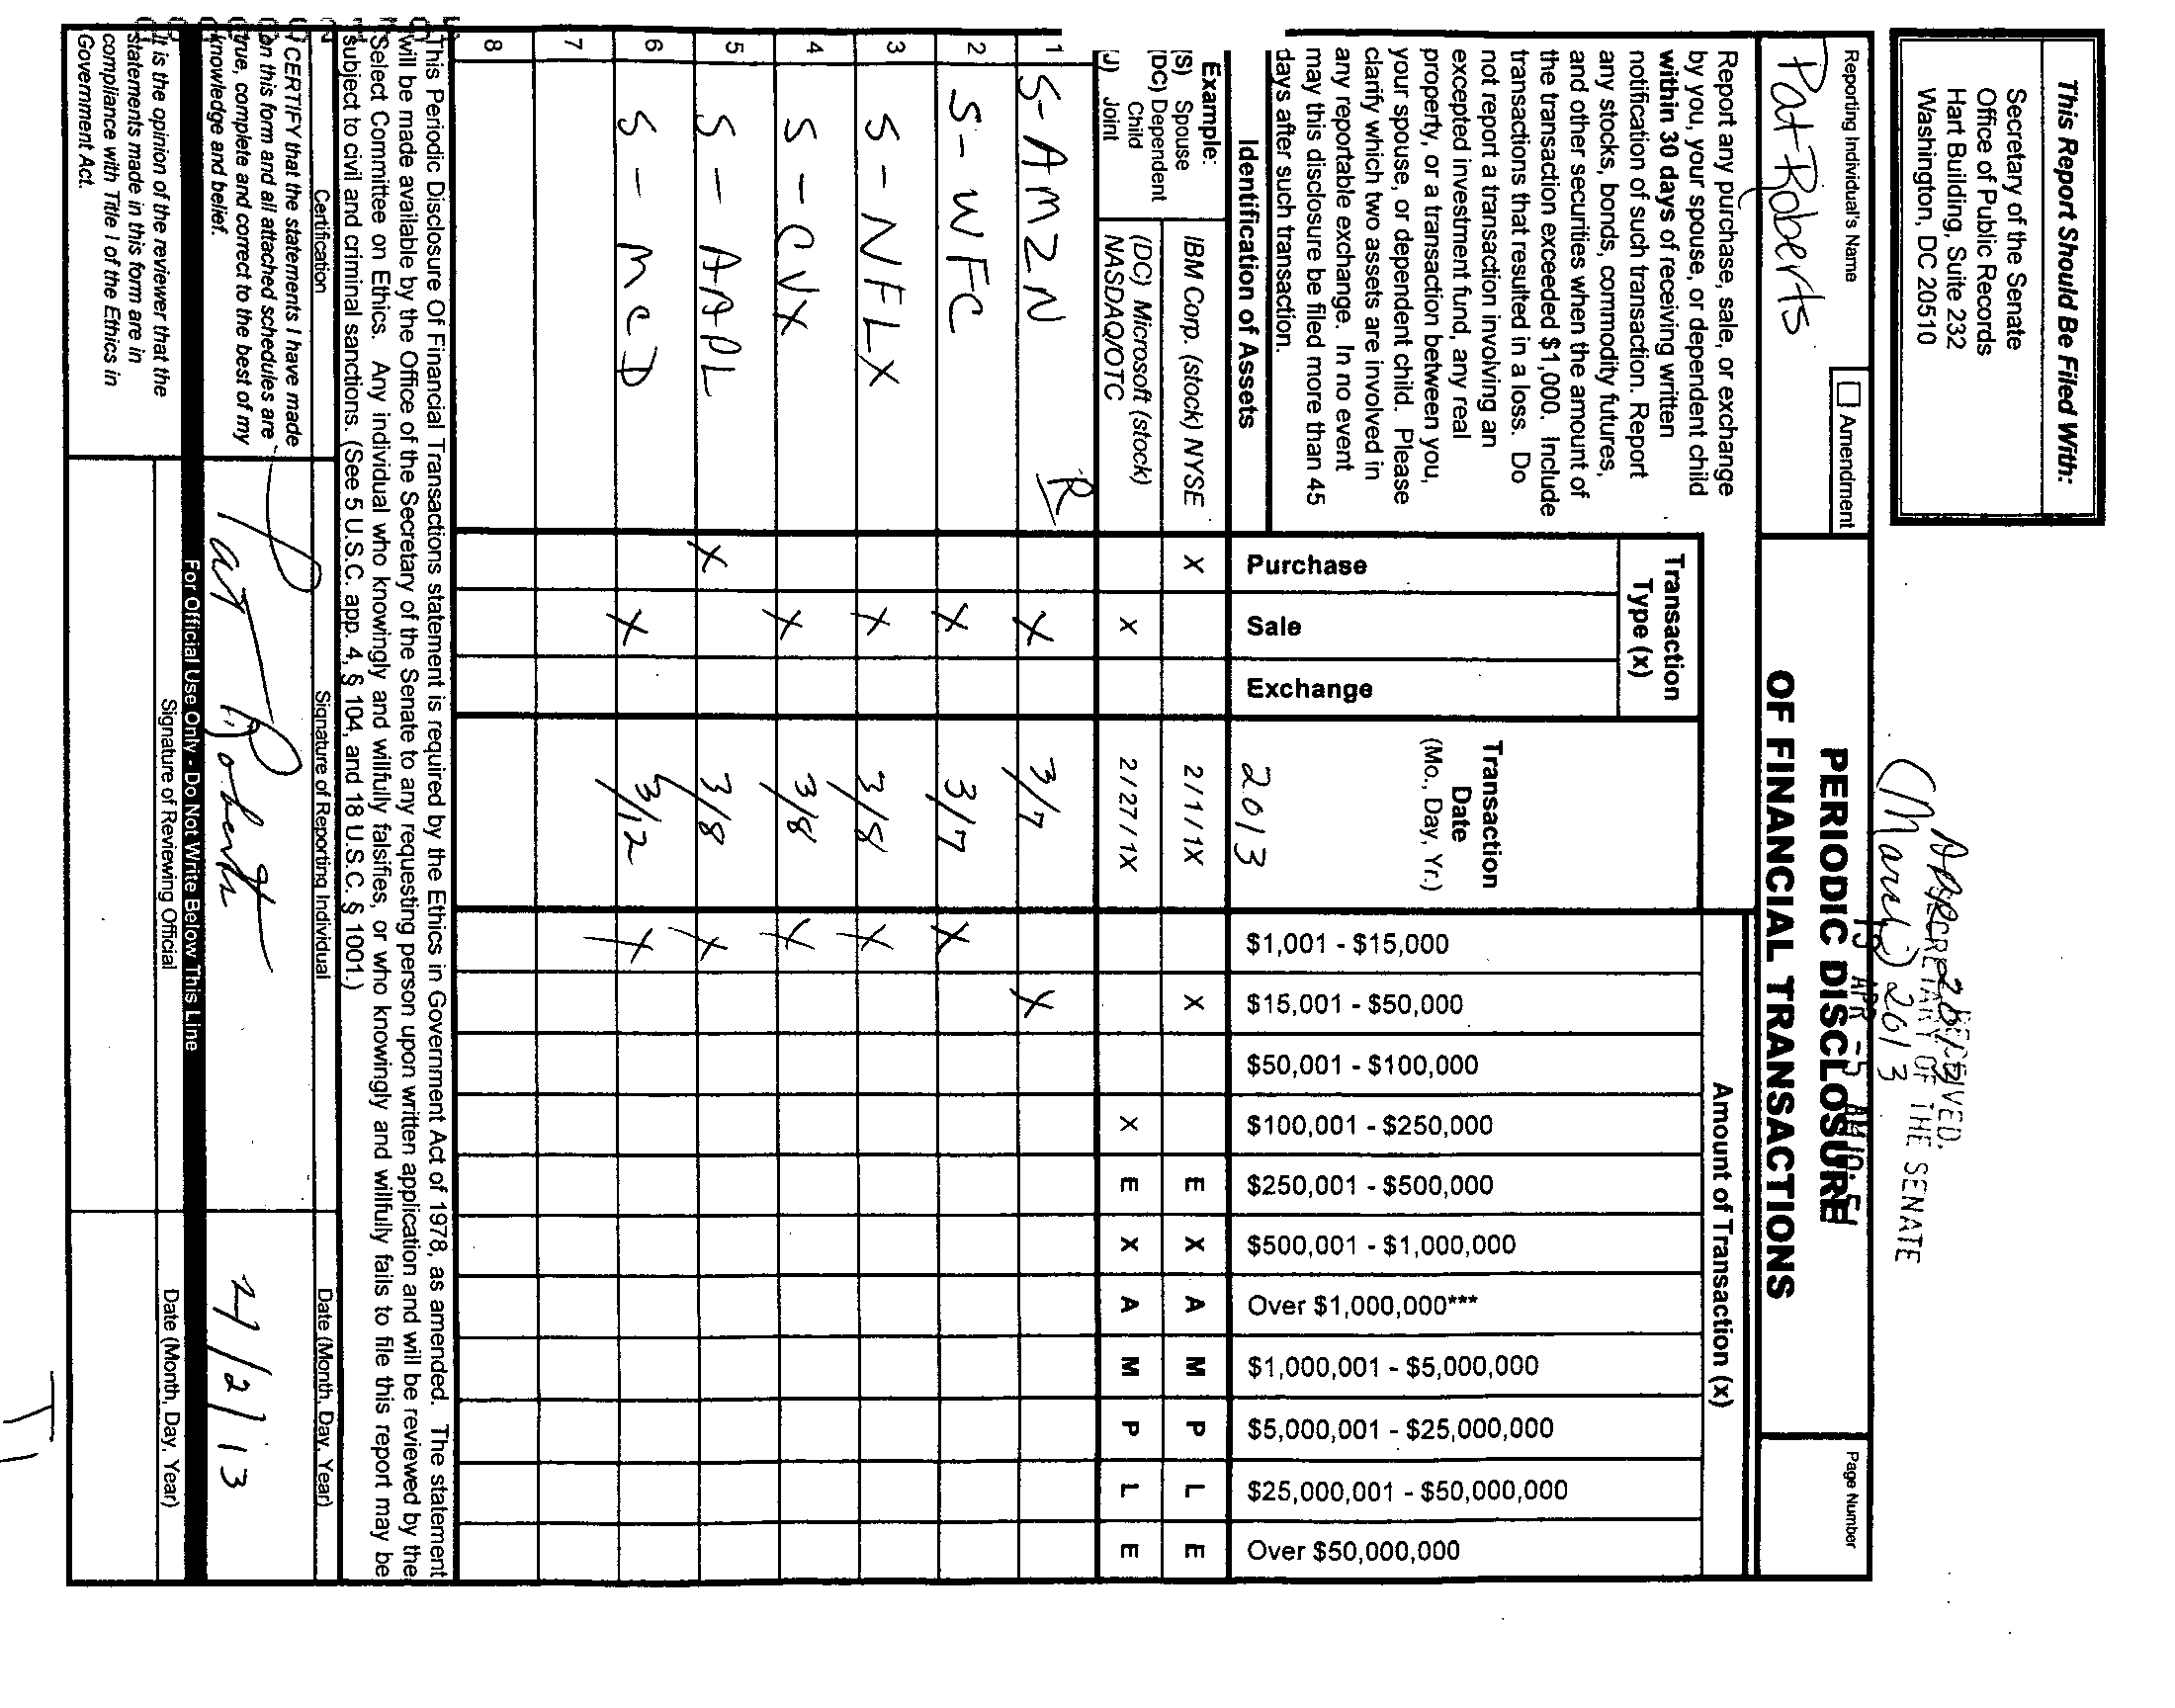 This Report Should Be Filed With:
Secretary of the Senate
Office of Public Records
Hart Building, Suite 232
Washington, DC 20510
(March) 2013
SECRETARY OF THE SENATE
Reporting Individual's Name
Pat Roberts
Amendment
PERIODIC DISCLOSURE
OF FINANCIAL TRANSACTIONS
Page Number
Report any purchase, sale, or exchange
by you, your spouse, or dependent child
within 30 days of receiving written
notification of such transaction. Report
any stocks, bonds, commodity futures,
and other securities when the amount of
the transaction exceeded $1,000. Include
transactions that resulted in a loss. Do
not report a transaction involving an
excepted investment fund, any real
property, or a transaction between you,
your spouse, or dependent child. Please
clarify which two assets are involved in
any reportable exchange. In no event
may this disclosure be filed more than 45
days after such transaction.
Identification of Assets
Transaction
Type (x)
Purchase
Sale
Exchange
Transaction
Date
(Mo., Day, Yr.)
2013
Amount of Transaction (x)
$1,001 - $15,000
$15,001 - $50,000
$50,001 - $100,000
$100,001 - $250,000
$250,001 - $500,000
$500,001 - $1,000,000
Over $1,000,000***
$1,000,001 - $5,000,000
$5,000,001 - $25,000,000
$25,000,001 - $50,000,000
Over $50,000,000
Example:
(S) Spouse
(DC) Dependent
Child
(J) Joint
IBM Corp. (stock) NYSE X 2/1/1X X E X A M P L E
(DC) Microsoft (stock)
NASDAQ/OTC X 2/27/1X X E X A M P L E
1 S-AMZN R X 3/7 X
2 S-WFC X 3/7 X
3 S-NFLX X 3/8 X
4 S-CVX X 3/8 X
5 S-AAPL X 3/8 X
6 S-MCD X 3/12 X
7
8
This Periodic Disclosure Of Financial Transactions statement is required by the Ethics in Government Act of 1978, as amended. The statement
will be made available by the Office of the Secretary of the Senate to any requesting person upon written application and will be reviewed by the
Select Committee on Ethics. Any individual who knowingly and willfully falsifies, or who knowingly and willfully fails to file this report may be
subject to civil and criminal sanctions. (See 5 U.S.C. app. 4, § 104, and 18 U.S.C. § 1001.)
Certification
Signature of Reporting Individual
Date (Month, Day, Year)
I CERTIFY that the statements I have made
on this form and all attached schedules are
true, complete and correct to the best of my
knowledge and belief.
Pat Roberts
4/2/13
For Official Use Only - Do Not Write Below This Line
It is the opinion of the reviewer that the
statements made in this form are in
compliance with Title I of the Ethics in
Government Act.
Signature of Reviewing Official
Date (Month, Day, Year)